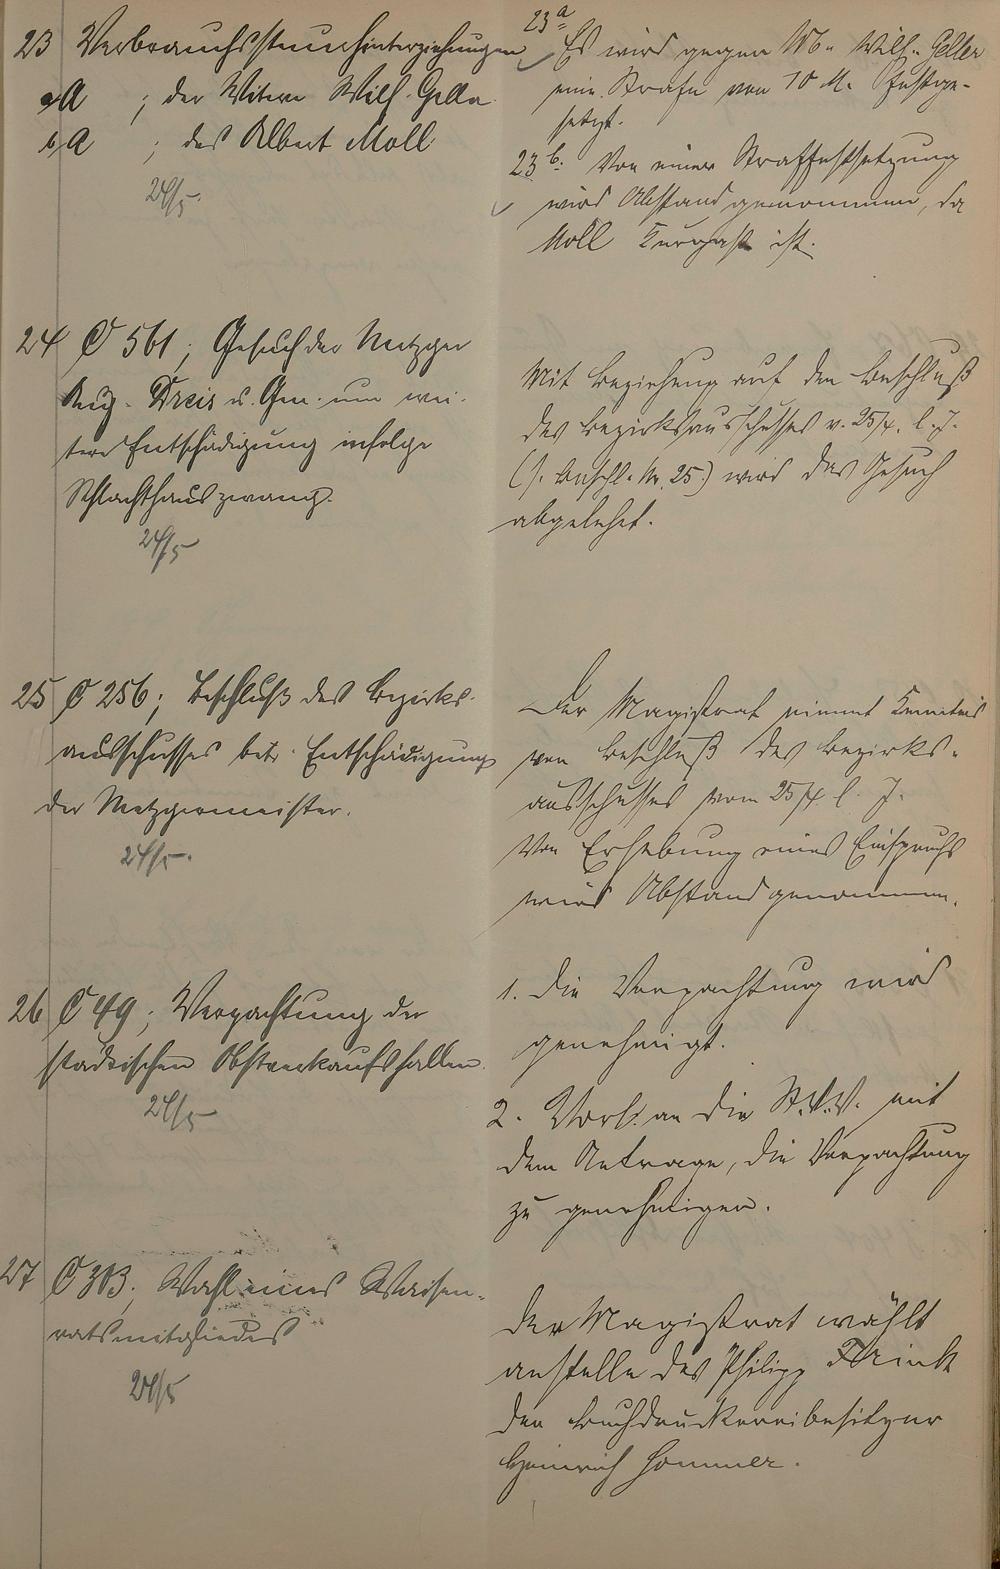 23 Verbrauchssteuerhinterziehungen
a, A ; der Witwe Wilh. Geller
b, A ; des Albert Moll
24/5.
23a Es wird gegen Ww. Wilh. Geller
eine Strafe von 10 M. festge-
setzt.
23b. Von einer Straffestsetzung
wird Abstand genommen, da
Moll Kurgast ist.
24 C 561; Gesuch der Metzger
Aug. Dreis u. Gen. um wei-
tere Entschädigung infolge
Schlachthauszwang.
24/5
Mit Beziehung auf den Beschluß
des Bezirksausschusses v. 25/4. l. J.
(s. Beschl. Nr. 25.) wird das Gesuch
abgelehnt.
25 C 256; Beschluß des Bezirks-
ausschusses betr. Entschädigung
der Metzgermeister.
24/5.
Der Magistrat nimmt Kenntnis
vom Beschluß des Bezirks-
ausschusses vom 25/4 l. J.
Von Erhebung eines Einspruchs
wird Abstand genommen.
26 C 49; Verpachtung der
städtischen Obstverkaufshallen.
24/5
1. Die Verpachtung wird
genehmigt.
2. Vorl. an die St.V.V. mit
dem Antrage, die Verpachtung
zu genehmigen.
27 C 303; Wahl eines Waisen-
ratsmitgliedes
24/5
Der Magistrat wählt
anstelle des Philipp Frink
den Buchdruckereibesitzer
Heinrich Sommer.